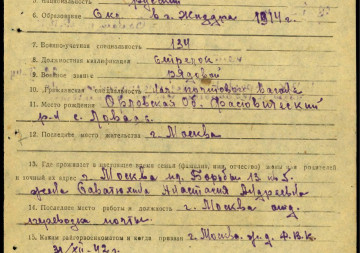 5. Национальность русский
6. Образование 1914 г.
7. Военноучетная специальность 134
8. Должностная квалификация стрелок
9. Военное звание рядовой
10. Гражданская специальность почтового вагона
11. Место рождения Орловская Об.
р-н с.
12. Последнее место жительства г. Москва
13. Где проживает в настоящее время семья (фамилия, имя, отчество) жены или родителей
и точный их адрес г. Москва пл. Борьбы 13 кв 5.
жена Анастасия Андреевна
14. Последнее место работы и должность г. Москва
перевозка почты.
15. Каким райгорвоенкоматом и когда призван г. Москва
31/XII-42 г.